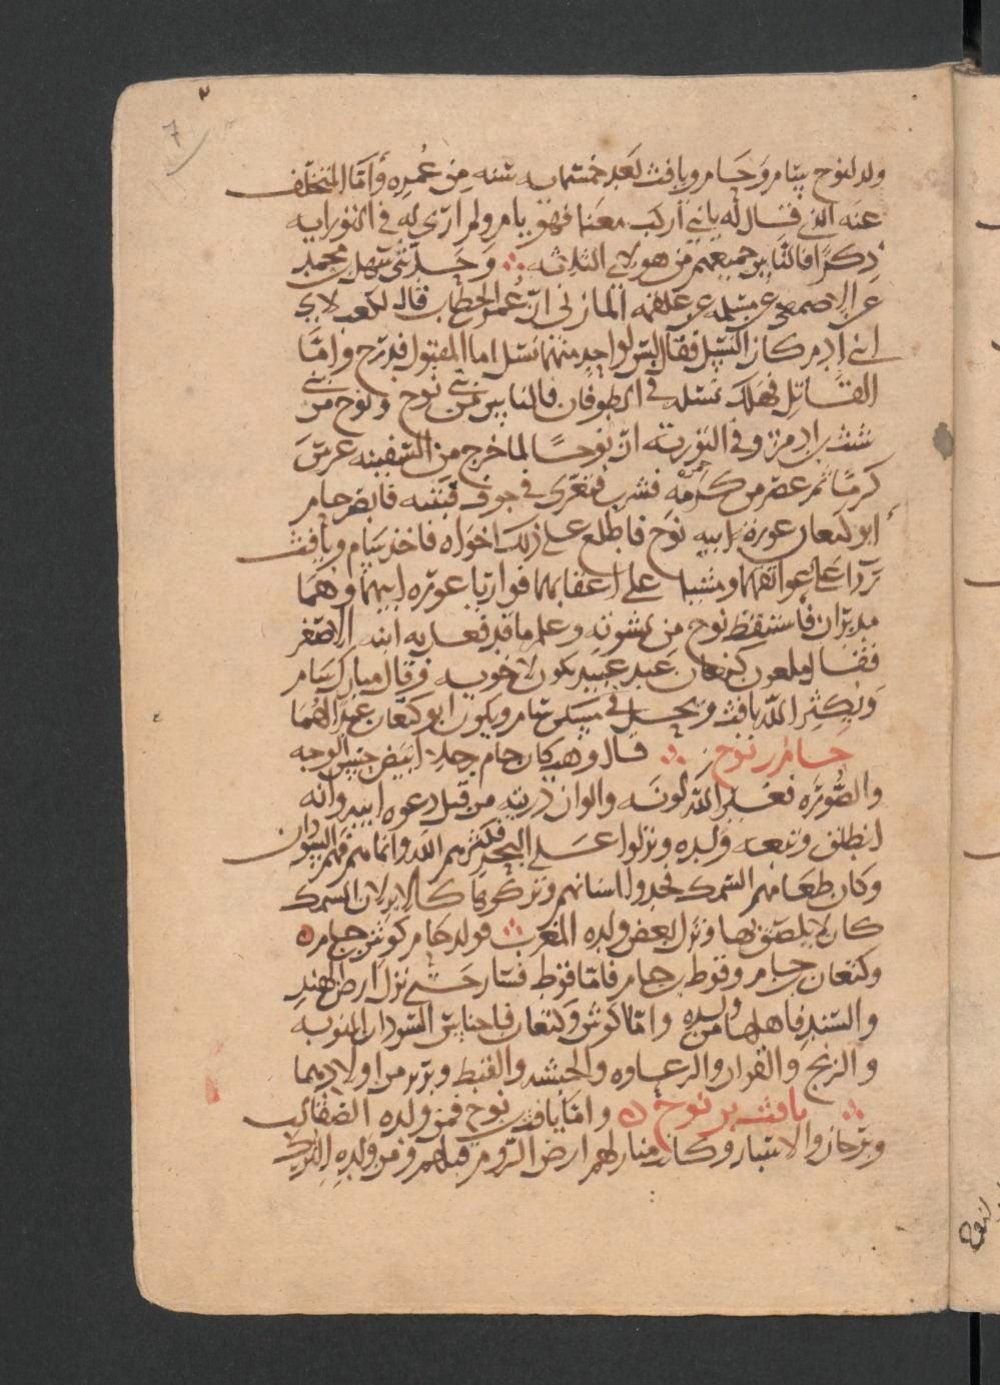 7
ولد لنوح سام وحام ويافث بعد خمسمايه سنه من عُمِره وأمّا المتخلّف
عنه الذي قال له يا بني اركب معَنا فهو يام ولم ارَى له في التورايه
ذِكرًا فالنّاس جميعهم من هولاي الثلاثه ∴ وحَدّثني سهل بن محمد
عن الاصمعي عن مسلمه عن علقمه المازني انّ عُمر بن الخطاب قال لكعب لاي
ابني ادم كان النسل فقال ليس لواحِد منهما نسل اما المقتول فدرج وامّا
القاتِل فهلك نسله في الطوفان فالناس من بني نوح ونوح من بني
شيث بن ادم وفي التوريه انّ نوحًا لما خرج من السّفينه غرسَ
كرمًا ثم عصر من كرمه خمره فشرب فتعَرّى في جوف قبّته فابصر حام
ابو كنعان عورة ابيه نوح فاطلع على ذلك اخواه فاخذ سَام ويافث
ردآ على عواتقهما ومشيا على اعقابهما فواريا عورَه ابيهما وهمَا
مدبرَان فاستيقظ نوح من نشوته وعلم ما قد فعل به ابنه الاصغر
فقال ملعون كنعان عَبد عبيد يكون لاخويه وقال مبارك سَام
ويكثِر الله يافث ويحل في مسكن سَام ويكون ابو كنعان عبدًا لهما
حام بن نوح ∴ قال وهب كان حام رجلا ابيض حسن الوجه
والصّورَه فغيّر الله لونَه والوان ذريته من قبل دعوه ابيه وانه
انطلق وتبعه ولده ونزلوا على ساحل البحر فكثرهم الله وانماهم فهم السّودان
وكان طعامهم السّمك فحددوا اسنانهم وتركوها كالابر لان السمك
كان يلصق بها ونزل بعض ولده المغرب ∴ فولد حام كوش بن حام
وكنعان بن حام وقوط بن حام فامّا قوط فسَار حَتى نزل ارض الهندِ
والسّند فاهلها من ولده وامّا كوش وكنعان فاجناس السّودان النوبه
والزنج والقران والزغاوه والحبشه والقبط وبربر من اولادهما
∴ يافث بن نوح وامّا يافث بن نوح فمن ولده الصّقالب
وبرجان والاشبان وكانت منازلهم ارض الروم قبل الروم ومن ولدِه التُّرك